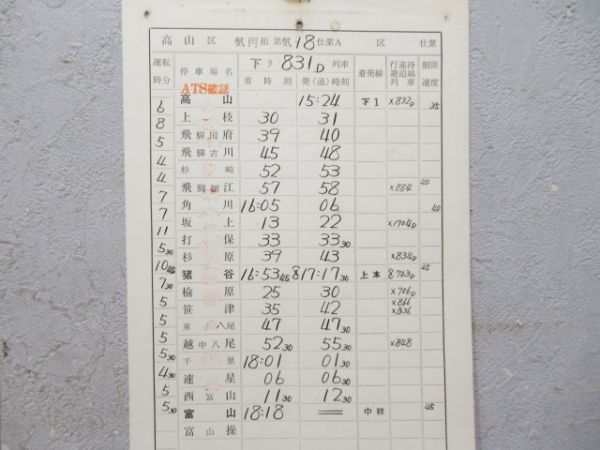 高山区 気 組 第 気 18 仕業A 区 仕業
運転時分 停車場名 下り 831D 列車 着時刻 発(通)時刻 着発線 行違待避追越列車 制限速度
ATS確認
高山 15:24 下1 ×832D 35
6 上枝 30 31
8 飛騨国府 39 40
5 飛騨古川 45 48
4 杉崎 52 53
4 飛騨細江 57 58 ×884 40
7 角川 16:05 06 40
7 坂上 13 22 ×1704D
11 打保 33 33 30
5 30 杉原 39 43 ×834D
10 45 猪谷 16:53 45 17:17 30 上本 8703D 25
7 30 楡原 25 30 ×706D
5 笹津 35 42 ×866 ×836
5 東八尾 47 47 30
5 越中八尾 52 30 55 30 ×848
5 30 千里 18:01 01 30
4 30 速星 06 06 30
5 西富山 11 30 12 30
5 30 富山 18:18 中 45
富山操